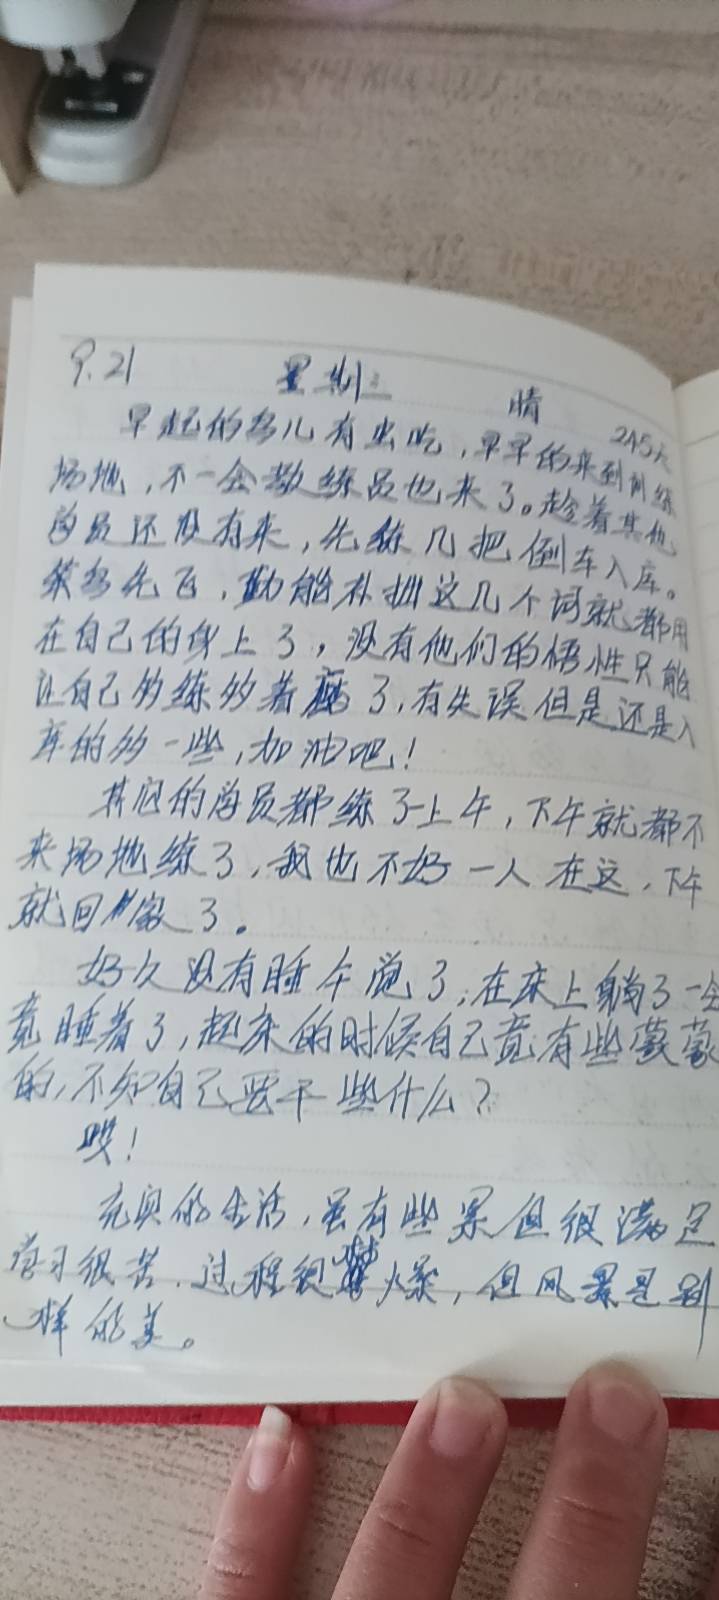 9.21 星期三 晴 245天
早起的鸟儿有虫吃，早早的来到训练
场地，不一会教练员也来了。趁着其他
学员还没有来，先练几把倒车入库。
笨鸟先飞，勤能补拙这几个词就都用
在自己的身上了，没有他们的悟性只能
让自己多练多着了，有失误但是还是入
库的多一些，加油吧！
其他的学员都练了一上午，下午就都不
来场地练了，我也不好一人在这，下午
就回家了。
好久没有睡午觉了，在床上躺了一会
竟睡着了，起床的时候自己竟有些蒙蒙
的，不知自己要干些什么？
哎！
充实的生活，虽有些累但很满足
学习很苦，过程很燥，但风景是别
样的美。